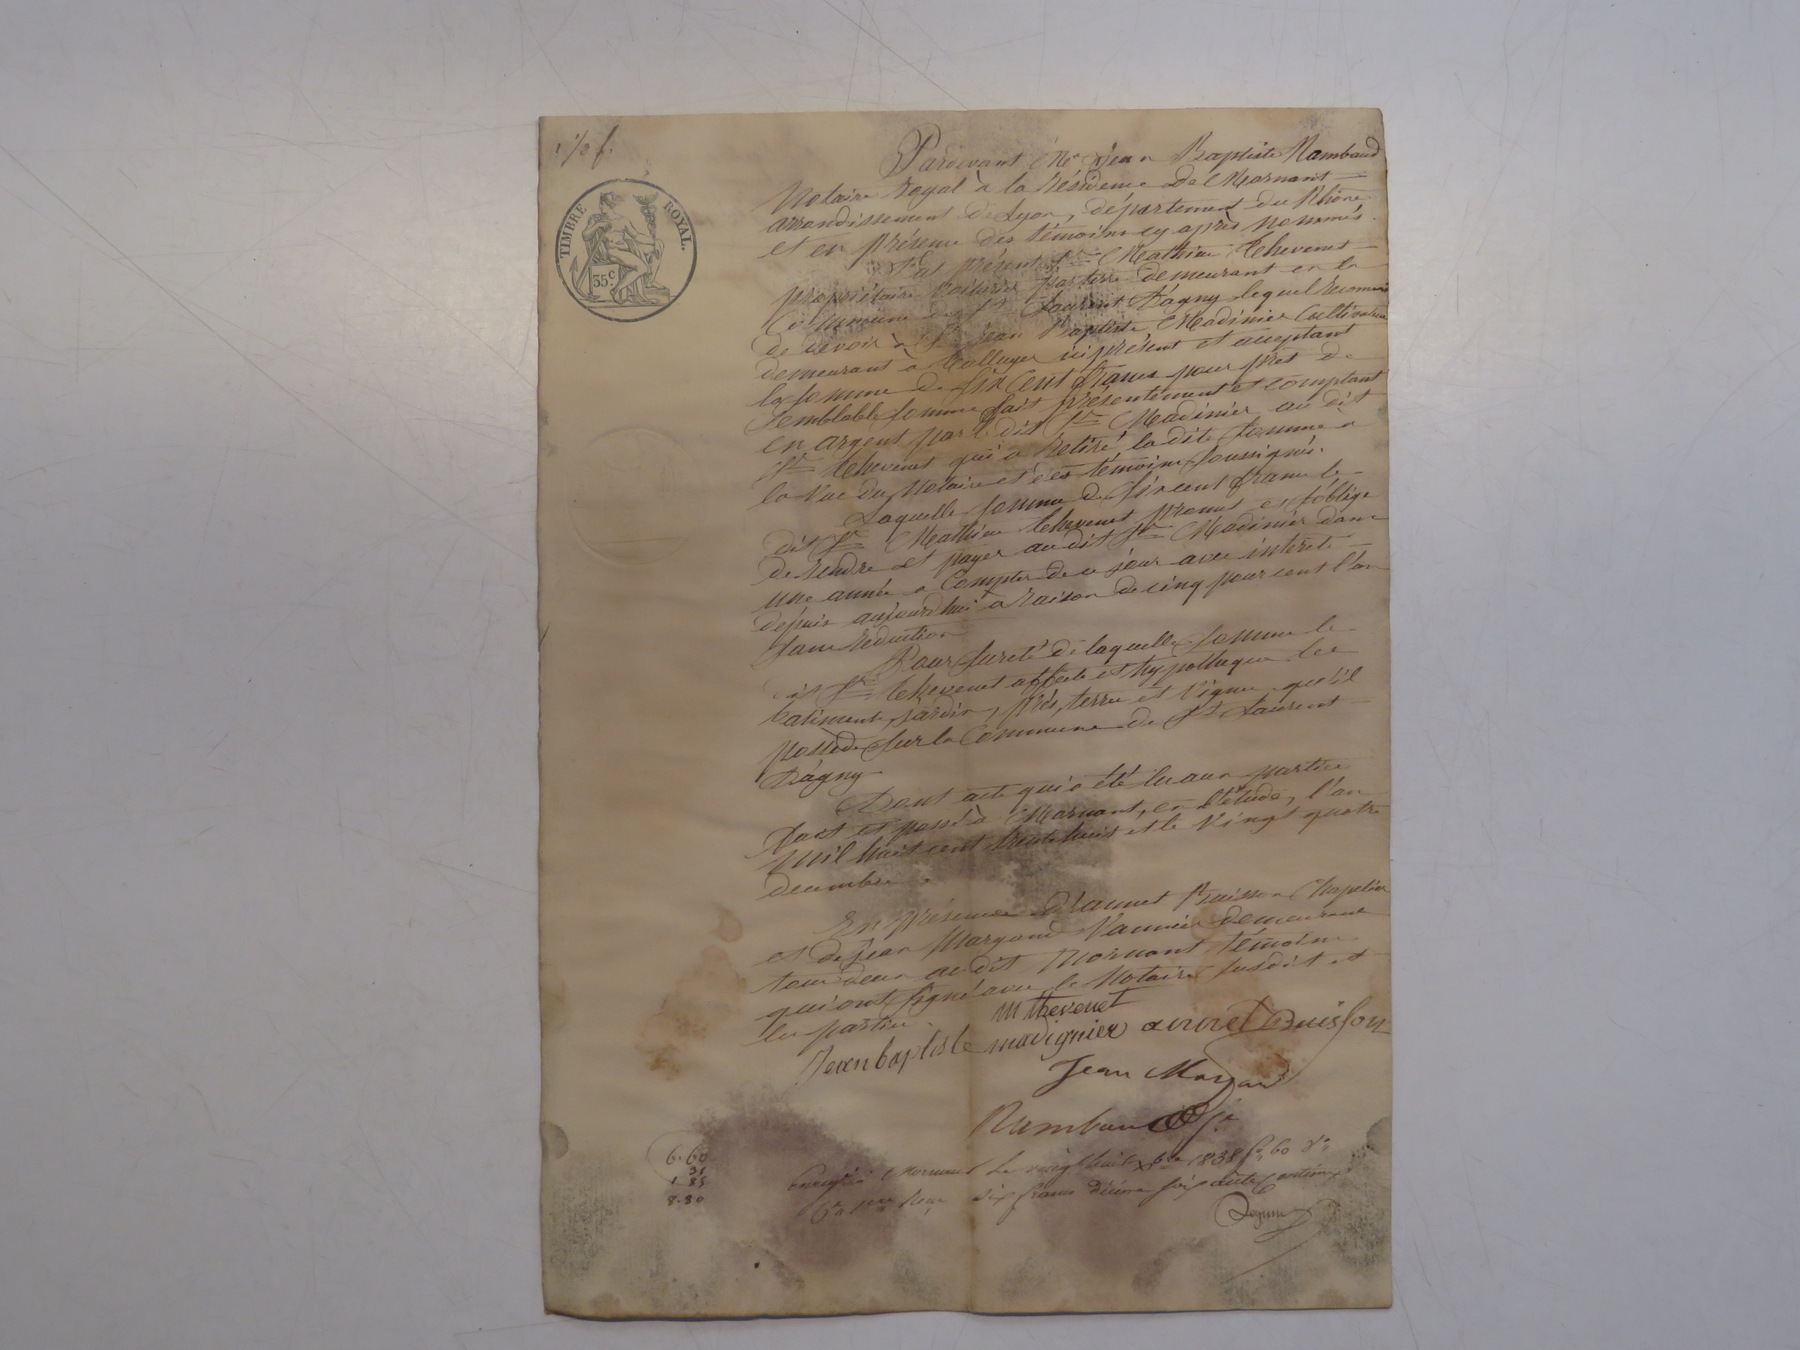 TIMBRE ROYAL.
35 c
Pardevant Me Jean Baptiste Rambaud
Notaire royal à la résidence de Mornant
arrondissement de Lyon, département du Rhône
et en présence des témoins cy après nommés.
fut présent Sr Mathieu Thevenet
propriétaire voiturier par terre demeurant en la
Commune de St Laurent D'agny lequel reconnait
de devoir à Sr Jean Baptiste Madinier Cultivateur
demeurant à Tolluyer ici présent et acceptant
la somme de six cent francs pour prêt de
semblable somme fait présentement et comptant
en argent par le dit Sr Madinier au dit
Sr Thevenet qui a retiré la dite somme à
la vue du Notaire et des témoins soussignés.
Laquelle somme de six cent francs le
dit Sr Mathieu Thevenet promet et s'oblige
de rendre et payer au dit Sr Madinier dans
une année à Compter de ce jour avec intérêts
depuis aujourd'hui à raison de cinq pour cent l'an
sans réduction
Pour sureté de laquelle somme le
dit Sr Thevenet affecte et hypothèque les
batiments, jardin, prés, terres et vignes qu'il
possède sur la Commune de St Laurent
D'agny
Dont acte qui a été lu aux parties
fait et passé à Mornant, en l'étude, l'an
mil huit cent trente huit et le vingt quatre
decembre.
En présence d'aunet Buisson Chapelier
et de Jean Margand Vannier demeurant
tous deux au dit Mornant témoins
qui ont signé avec le Notaire susdit et
les parties.
M thevenet
Jean baptiste madignier aunet Buisson
Jean Margand
Rambaud
6.60
1 85
8.80
Enregistré à Mornant le vingt huit Xbre 1838 fo 60 Vo
Ce 1ere Reçu six francs décime soixante centimes